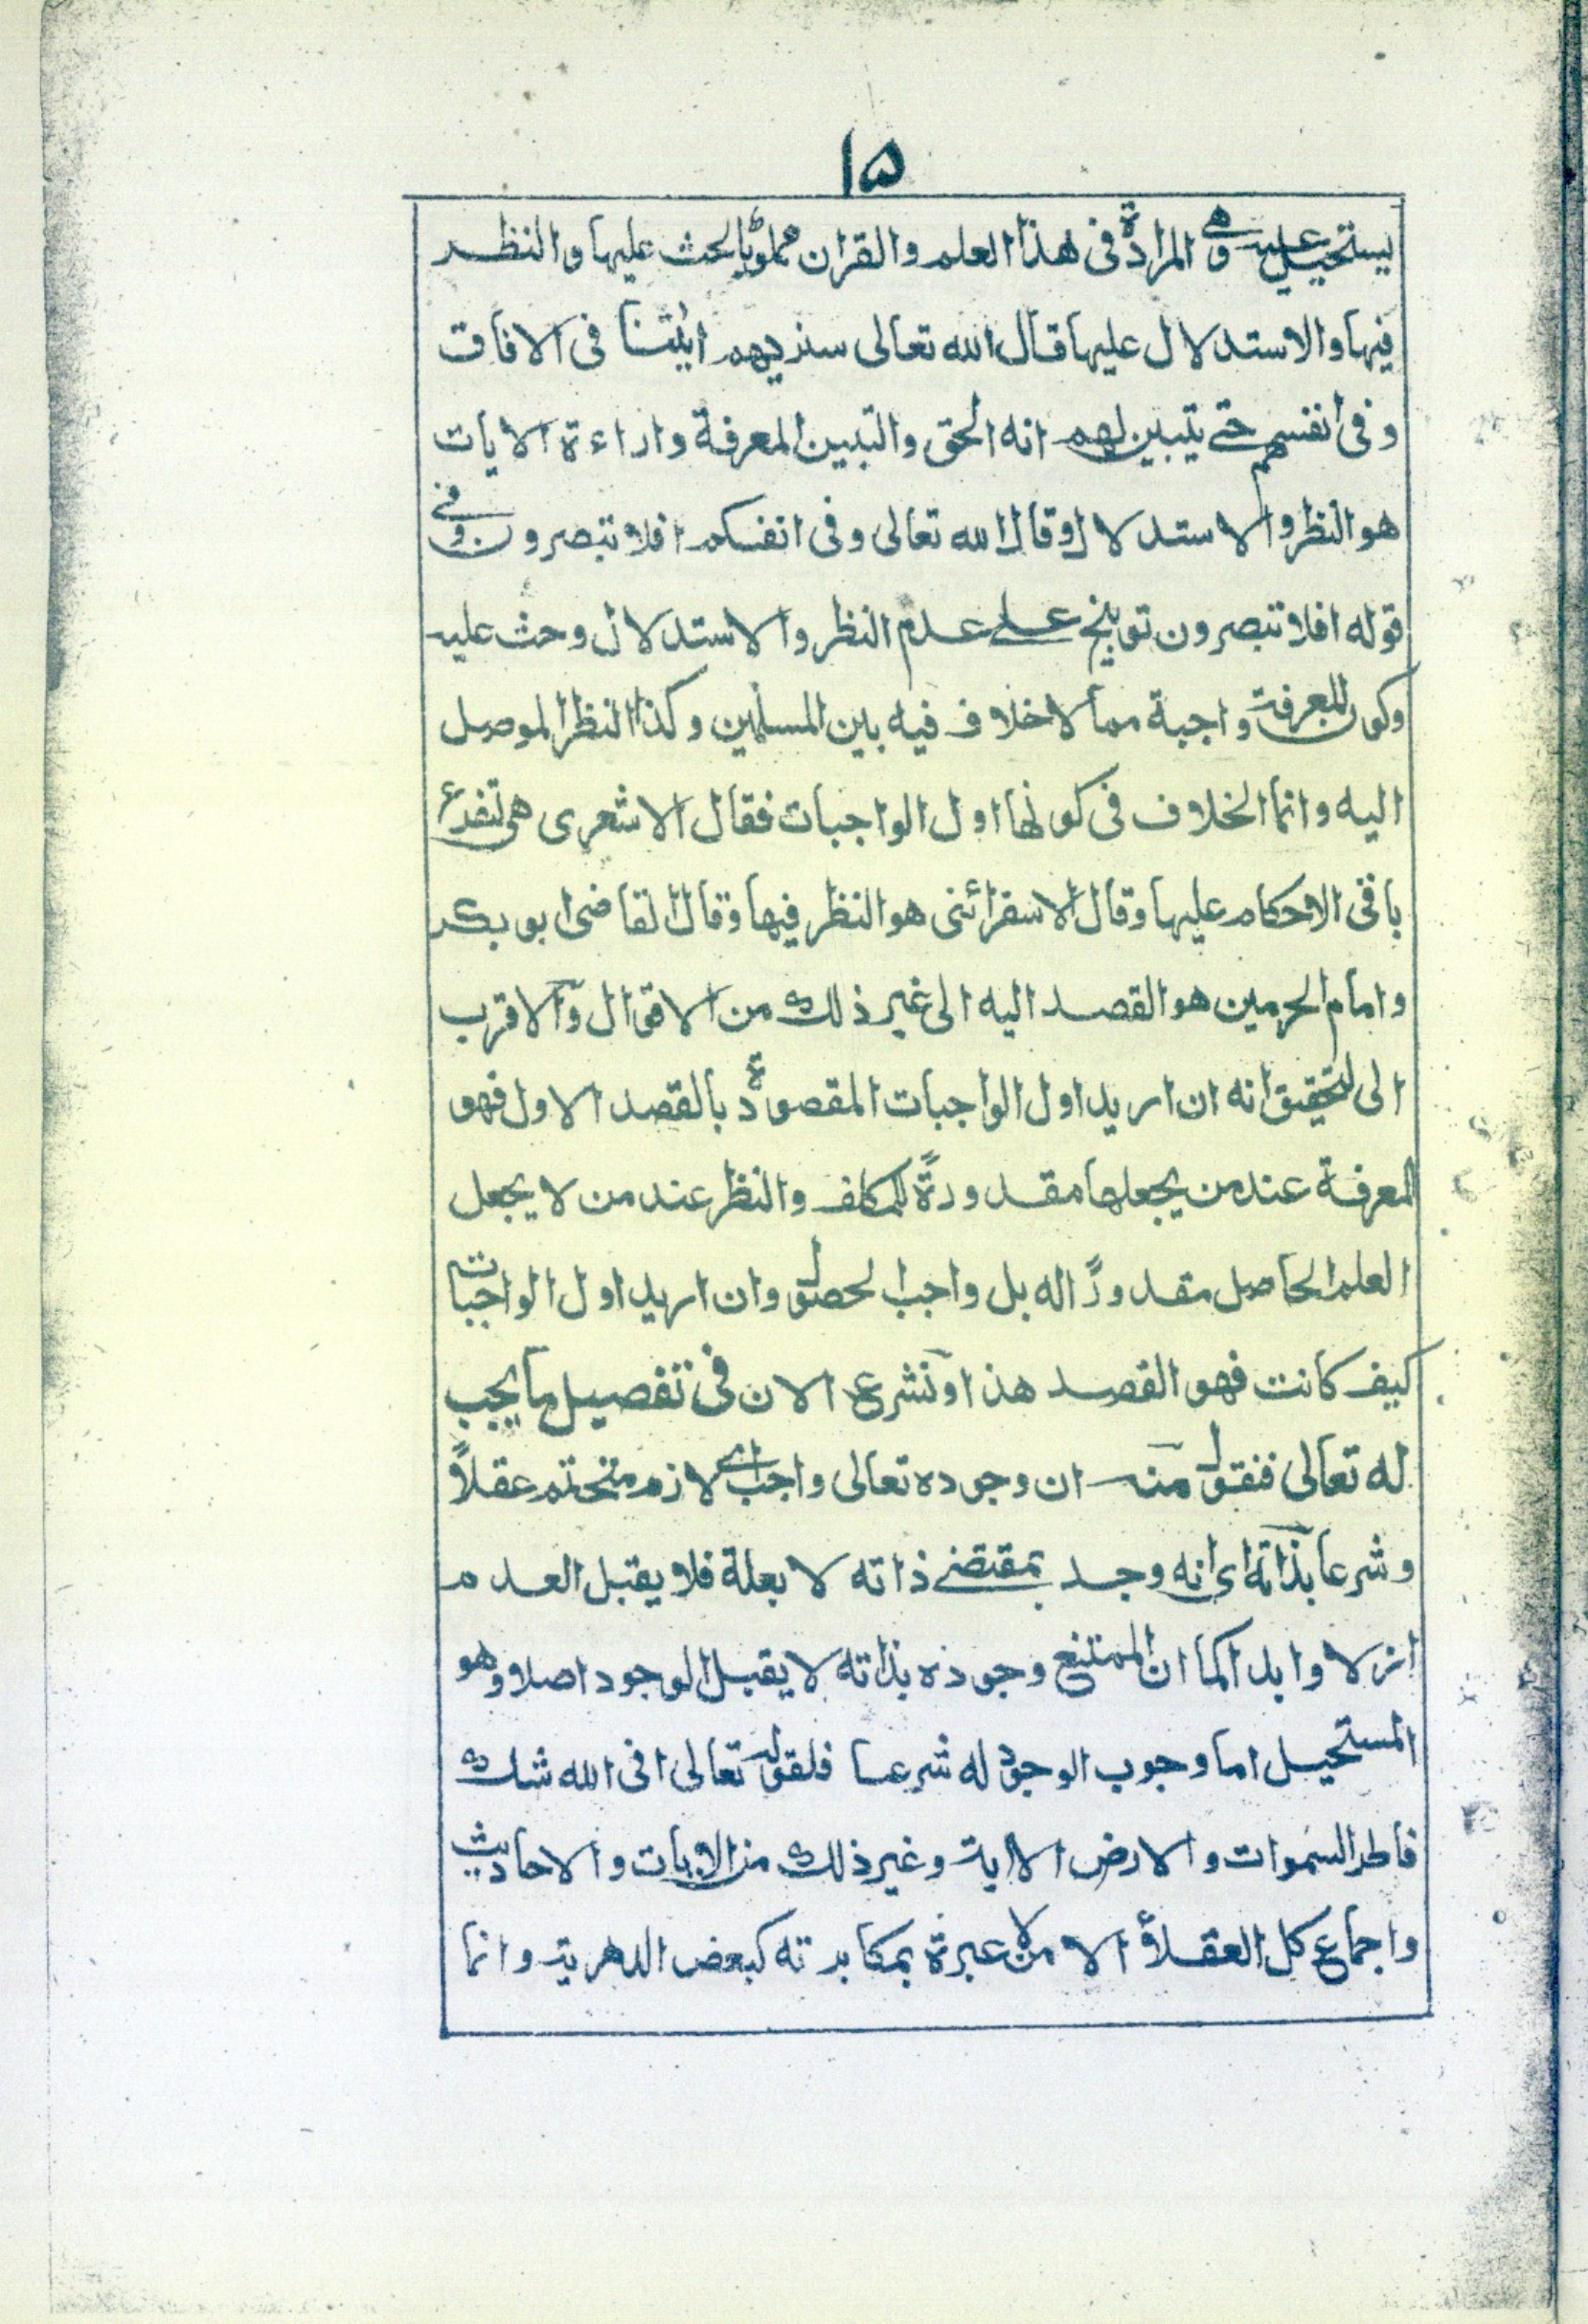 ١٥
يستحيل عليه وهى المرادة فى هذا العلم والقران مملو بالحث عليها والنظر
فيها والاستدلال عليها قال الله تعالى سنريهم ايٰتنا فى الافاق
وفى انفسهم حتے يتبين لهم انه الحق والتبيين المعرفة واراءة الايات
هو النظر والاستدلال وقال الله تعالى وفى انفسكم افلا تبصرون وفے
قوله افلا تبصرون توبيخ علے عدم النظر والاستدلال وحث عليه
وكون المعرفة واجبة مما لاخلاف فيه بين المسلمين وكذا النظر الموصل
اليه وانما الخلاف فى كونها اول الواجبات فقال الاشعرى هى لتفرع
باقى الاحكام عليها وقال الاسفرائنى هو النظر فيها وقال القاضى ابو بكر
وامام الحرمين هو القصد اليه الى غير ذلك من الاقوال والاقرب
الى التحقيق انه ان اريد اول الواجبات المقصودة بالقصد الاول فهو
المعرفة عند من يجعلها مقدورةً للمكلف والنظر عند من لا يجعل
العلم الحاصل مقدورًا له بل واجب الحصول وان اريد اول الواجبات
كيف كانت فهو القصد هذا ونشرع الان فى تفصيل ما يجب
له تعالى فنقول منه ان وجوده تعالى واجب اى لازم منحتم عقلاً
وشرعا بذاته اى انه وجد بمقتضے ذاته لا بعلة فلا يقبل العدم
ازلا وابدا كما ان الممتنع وجوده بذاته لا يقبل الوجود اصلا وهو
المستحيل اما وجوب الوجود له شرعا فلقوله تعالى افى الله شك
فاطر السموات والارض الاية وغير ذلك من الايات والاحاديث
واجماع كل العقلأ الا من لا عبرة بمكابرته كبعض الدهرية وانما